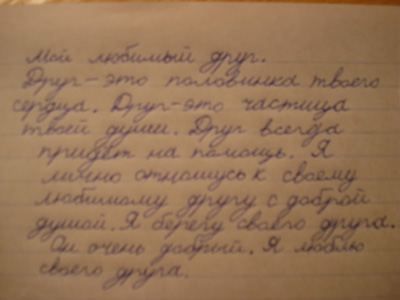 Мой любимый друг.
Друг - это половинка твоего
сердца. Друг - это частица
твоей души. Друг всегда
придёт на помощь. Я
лично отношусь к своему
любимому другу с доброй
душой. Я берегу своего друга.
Он очень добрый. Я люблю
своего друга.